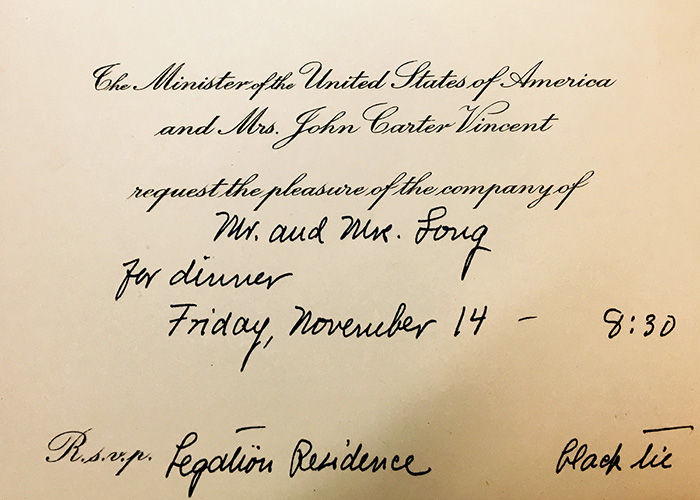 The Minister of the United States of America
and Mrs. John Carter Vincent
request the pleasure of the company of
Mr. and Mrs. Long
for dinner
Friday, November 14 – 8:30
R.s.v.p. Legation Residence black tie